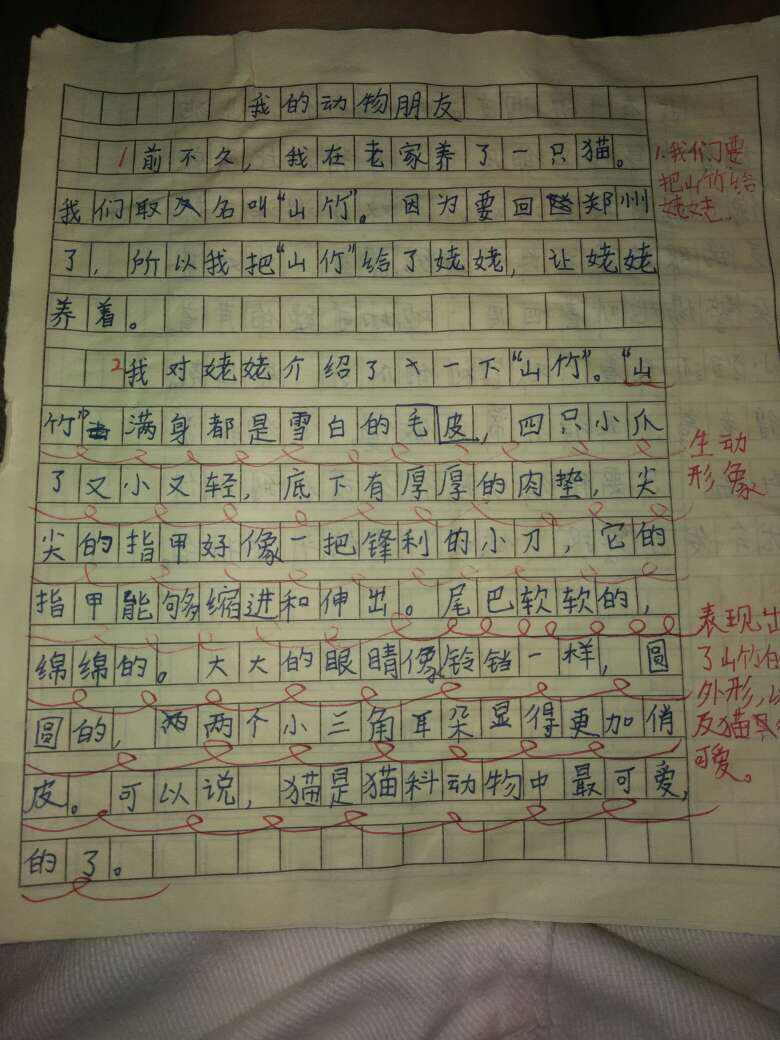 我的动物朋友
1前不久，我在老家养了一只猫。
我们取名叫“山竹”。因为要回郑州
了，所以我把“山竹”给了姥姥，让姥姥
养着。
2我对姥姥介绍了一下“山竹”。“山
竹”满身都是雪白的毛皮，四只小爪
了又小又轻，底下有厚厚的肉垫，尖
尖的指甲好像一把锋利的小刀，它的
指甲能够缩进和伸出。尾巴软软的，
绵绵的。大大的眼睛像铃铛一样，圆
圆的，两个小三角耳朵显得更加俏
皮。可以说，猫是猫科动物中最可爱，
的了。
1.我们要
把山竹给
姥姥。
生动
形象
表现出
了山竹的
外形，以
反猫
可爱。